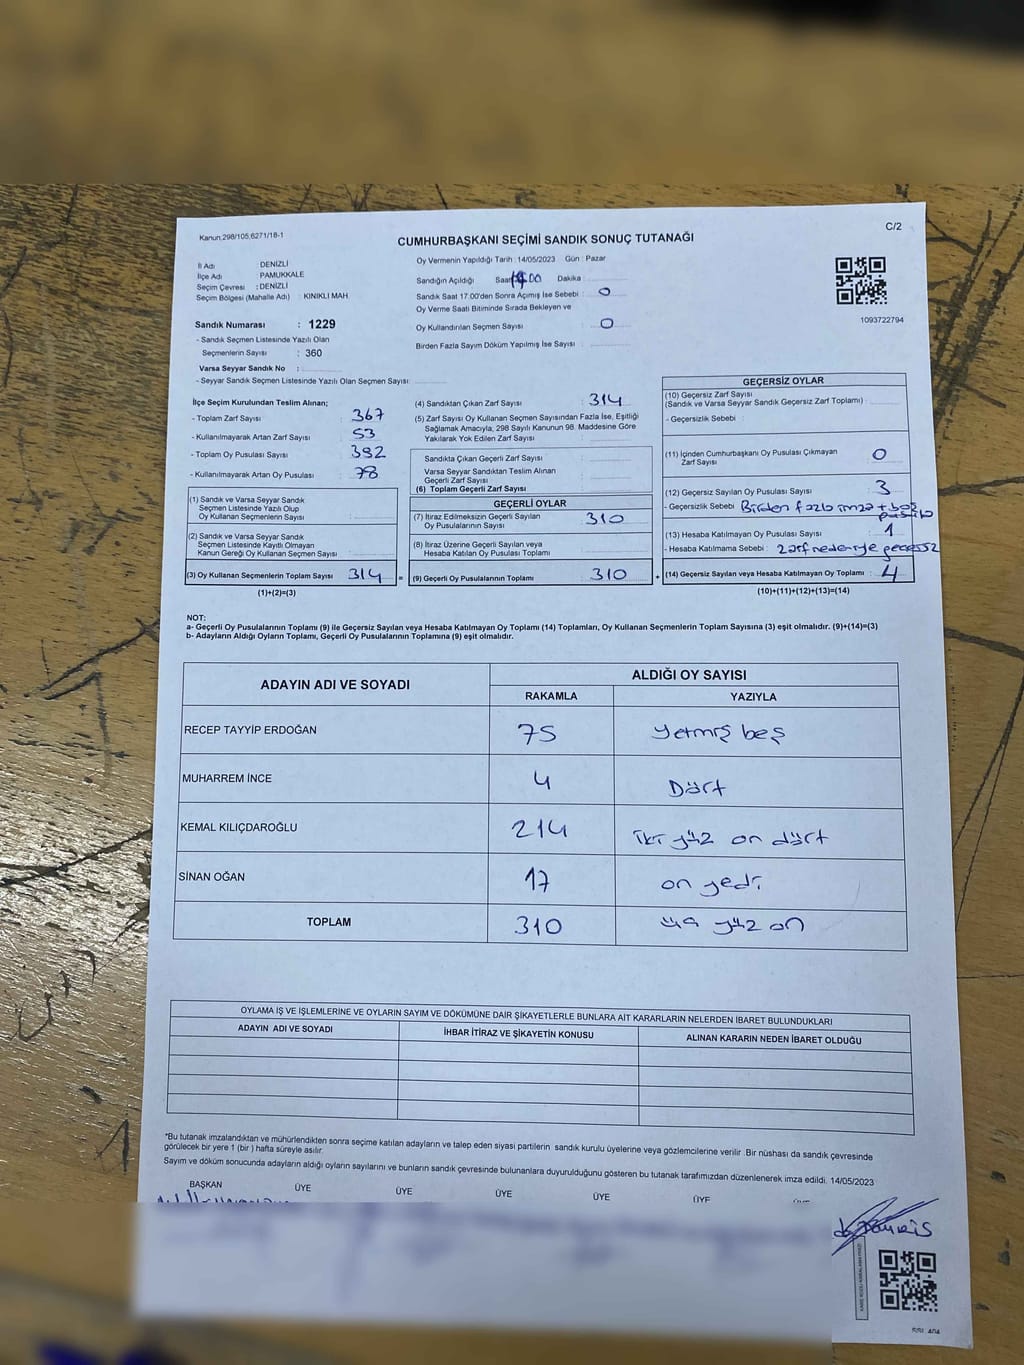 Kanun:298/105;6271/18-1
C/2
CUMHURBAŞKANI SEÇİMİ SANDIK SONUÇ TUTANAĞI
İl Adı DENİZLİ
İlçe Adı PAMUKKALE
Seçim Çevresi : DENİZLİ
Seçim Bölgesi (Mahalle Adı) : KINIKLI MAH
Oy Vermenin Yapıldığı Tarih : 14/05/2023 Gün : Pazar
Sandığın Açıldığı Saat 00 Dakika :
Sandık Saat 17.00'den Sonra Açımış İse Sebebi : 0
Oy Verme Saati Bitiminde Sırada Bekleyen ve
Oy Kullandırılan Seçmen Sayısı : 0
Birden Fazla Sayım Döküm Yapılmış İse Sayısı :
1093722794
Sandık Numarası : 1229
- Sandık Seçmen Listesinde Yazılı Olan
Seçmenlerin Sayısı : 360
Varsa Seyyar Sandık No :
- Seyyar Sandık Seçmen Listesinde Yazılı Olan Seçmen Sayısı:
İlçe Seçim Kurulundan Teslim Alınan;
- Toplam Zarf Sayısı : 367
- Kullanılmayarak Artan Zarf Sayısı : 53
- Toplam Oy Pusulası Sayısı : 392
- Kullanılmayarak Artan Oy Pusulası : 78
(1) Sandık ve Varsa Seyyar Sandık
Seçmen Listesinde Yazılı Olup
Oy Kullanan Seçmenlerin Sayısı :
(2) Sandık ve Varsa Seyyar Sandık
Seçmen Listesinde Kayıtlı Olmayan
Kanun Gereği Oy Kullanan Seçmen Sayısı :
(3) Oy Kullanan Seçmenlerin Toplam Sayısı 314 =
(1)+(2)=(3)
(4) Sandıktan Çıkan Zarf Sayısı : 314
(5) Zarf Sayısı Oy Kullanan Seçmen Sayısından Fazla İse, Eşitliği
Sağlamak Amacıyla, 298 Sayılı Kanunun 98. Maddesine Göre
Yakılarak Yok Edilen Zarf Sayısı :
Sandıkta Çıkan Geçerli Zarf Sayısı :
Varsa Seyyar Sandıktan Teslim Alınan
Geçerli Zarf Sayısı :
(6) Toplam Geçerli Zarf Sayısı :
GEÇERLİ OYLAR
(7) İtiraz Edilmeksizin Geçerli Sayılan
Oy Pusulalarının Sayısı : 310
(8) İtiraz Üzerine Geçerli Sayılan veya
Hesaba Katılan Oy Pusulası Toplamı :
(9) Geçerli Oy Pusulalarının Toplamı : 310 +
GEÇERSİZ OYLAR
(10) Geçersiz Zarf Sayısı
(Sandık ve Varsa Seyyar Sandık Geçersiz Zarf Toplamı) :
- Geçersizlik Sebebi :
(11) İçinden Cumhurbaşkanı Oy Pusulası Çıkmayan
Zarf Sayısı : 0
(12) Geçersiz Sayılan Oy Pusulası Sayısı : 3
- Geçersizlik Sebebi : Birden fazla imza + boş
pusula
(13) Hesaba Katılmayan Oy Pusulası Sayısı : 1
- Hesaba Katılmama Sebebi : zarf nedeniyle geçersiz
(14) Geçersiz Sayılan veya Hesaba Katılmayan Oy Toplamı : 4
(10)+(11)+(12)+(13)=(14)
NOT:
a- Geçerli Oy Pusulalarının Toplamı (9) ile Geçersiz Sayılan veya Hesaba Katılmayan Oy Toplamı (14) Toplamları, Oy Kullanan Seçmenlerin Toplam Sayısına (3) eşit olmalıdır. (9)+(14)=(3)
b- Adayların Aldığı Oyların Toplamı, Geçerli Oy Pusulalarının Toplamına (9) eşit olmalıdır.
ADAYIN ADI VE SOYADI ALDIĞI OY SAYISI
RAKAMLA YAZIYLA
RECEP TAYYİP ERDOĞAN 75 yetmiş beş
MUHARREM İNCE 4 Dört
KEMAL KILIÇDAROĞLU 214 iki yüz on dört
SİNAN OĞAN 17 on yedi
TOPLAM 310 üç yüz on
OYLAMA İŞ VE İŞLEMLERİNE VE OYLARIN SAYIM VE DÖKÜMÜNE DAİR ŞİKAYETLERLE BUNLARA AİT KARARLARIN NELERDEN İBARET BULUNDUKLARI
ADAYIN ADI VE SOYADI İHBAR İTİRAZ VE ŞİKAYETİN KONUSU ALINAN KARARIN NEDEN İBARET OLDUĞU
*Bu tutanak imzalandıktan ve mühürlendikten sonra seçime katılan adayların ve talep eden siyasi partilerin sandık kurulu üyelerine veya gözlemcilerine verilir .Bir nüshası da sandık çevresinde
görülecek bir yere 1 (bir ) hafta süreyle asılır.
Sayım ve döküm sonucunda adayların aldığı oyların sayılarını ve bunların sandık çevresinde bulunanlara duyurulduğunu gösteren bu tutanak tarafımızdan düzenlenerek imza edildi. 14/05/2023
BAŞKAN ÜYE ÜYE ÜYE ÜYE ÜYE